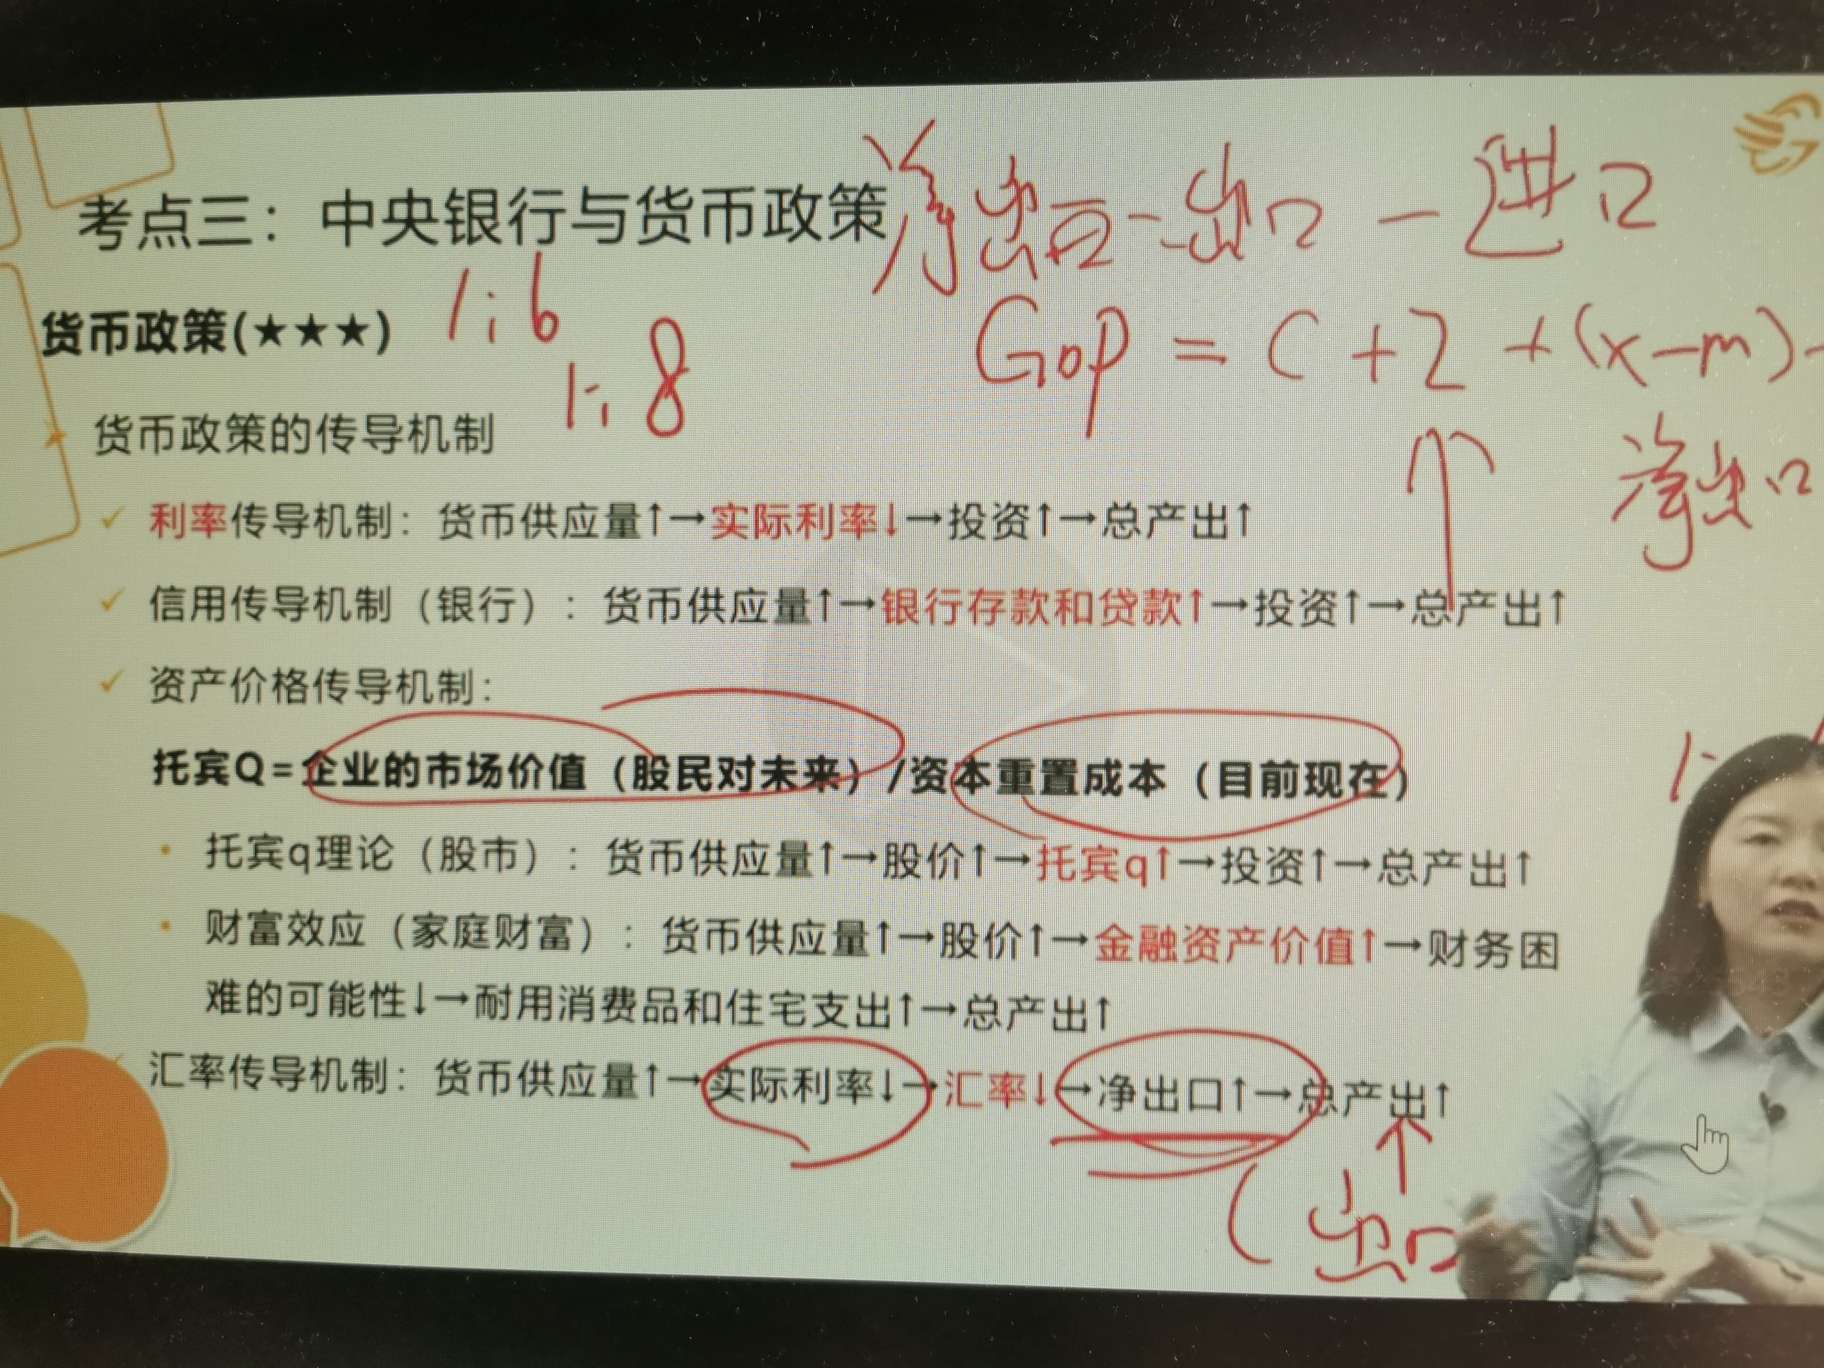 考点三：中央银行与货币政策
净出口=出口-进口
货币政策(★★★)
1:6
1:8
GDP=C+I+(x-m)
净出口
货币政策的传导机制
✓ 利率传导机制：货币供应量↑→实际利率↓→投资↑→总产出↑
✓ 信用传导机制（银行）：货币供应量↑→银行存款和贷款↑→投资↑→总产出↑
✓ 资产价格传导机制：
托宾Q=企业的市场价值（股民对未来）/资本重置成本（目前现在）
• 托宾q理论（股市）：货币供应量↑→股价↑→托宾q↑→投资↑→总产出↑
• 财富效应（家庭财富）：货币供应量↑→股价↑→金融资产价值↑→财务困
难的可能性↓→耐用消费品和住宅支出↑→总产出↑
✓ 汇率传导机制：货币供应量↑→实际利率↓→汇率↓→净出口↑→总产出↑
(出口